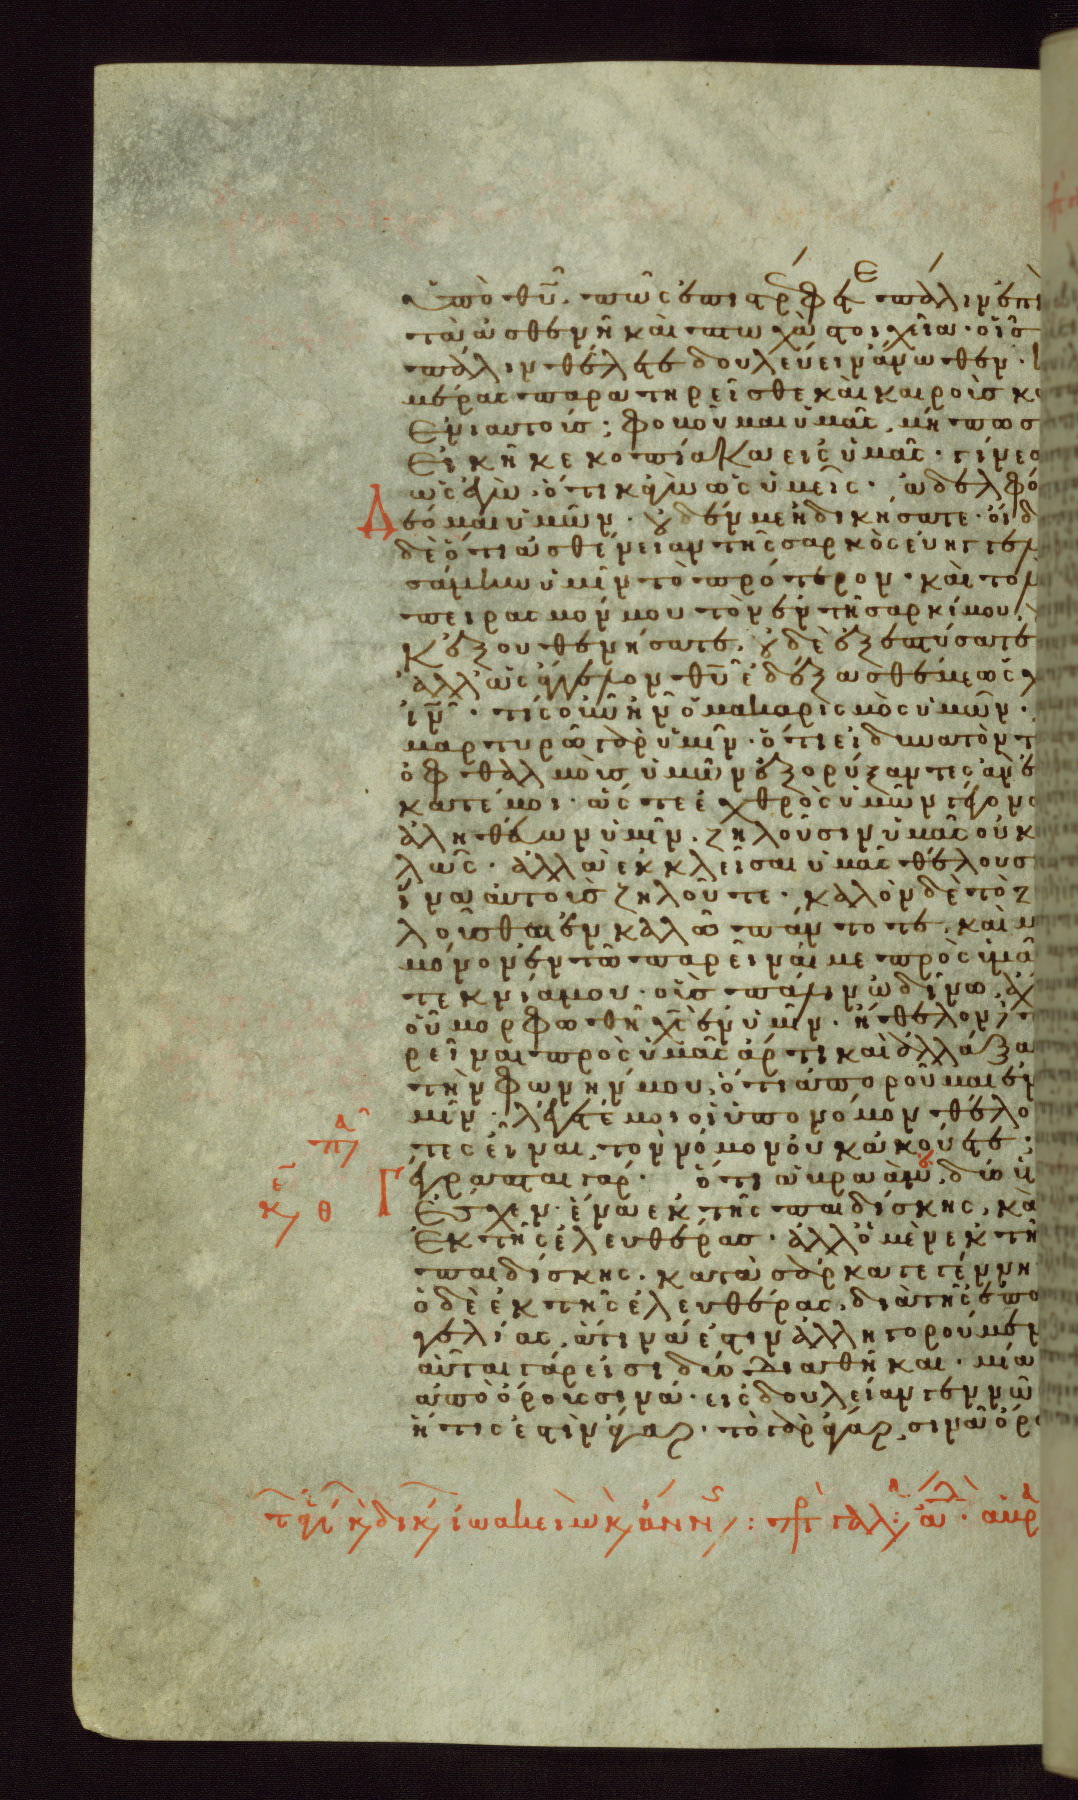 ὑπὸ θῦ. πῶς ἐπιστρέφετε πάλιν ἐπὶ
τὰ ἀσθενῆ καὶ πτωχὰ στοιχεῖα. οἷσ
πάλιν θέλετε δουλεύειν ἄνωθεν.
μέρας παρατηρεῖσθε καὶ καιροὺσ κ
ἐνιαυτούσ; φοβοῦμαι ὑμᾶς, μήπωσ
εἰκῆ κεκοπίακα εἰς ὑμᾶς. γίνεσ
ὡς ἐγὼ. ὅτι κἀγὼ ὡς ὑμεῖς. ἀδελφό
Δεόμαι ὑμῶν. οὐδέν με ἠδικήσατε. οἴδ
δὲ ὅτι ἀσθένειαν τῆς σαρκὸς εὐηγγελ
σάμην ὑμῖν τὸ πρότερον. καὶ τὸν
πειρασμόν μου τὸν ἐν τῆ σαρκί μου,
κ ἐξουθενήσατε. οὐδὲ ἐξεπτύσατε
ἀλλ ὡς ἄγγελον θῦ ἐδέξασθέ με ὡς χ
ἰν. τίς οὖν ἦν ὁ μακαρισμὸς ὑμῶν.
μαρτυρῶ γὰρ ὑμῖν. ὅτι εἰ δυνατὸν τ
ὀφθαλμοὺσ ὑμῶν ἐξορύξαντες ἂν ἐ
κατέ μοι. ὥστε ἐχθρὸς ὑμῶν γέγονα
ἀληθεύων ὑμῖν. ζηλοῦσιν ὑμᾶς οὐ κ
λῶς. ἀλλὰ ἐκκλεῖσαι ὑμᾶς θέλουσ
ἵνα αὐτοὺσ ζηλοῦτε. καλὸν δὲ τὸ ζ
λοῦσθαι ἐν καλῶ πάντοτε. καὶ μ
μόνον ἐν τῶ παρεῖναί με πρὸς ὑμᾶ
τεκνία μου. οὓσ πάλιν ὠδίνω, ἄχ
οὗ μορφωθῆ χς ἐν ὑμῖν. ἤθελον
ρεῖναι πρὸς ὑμᾶς ἄρτι καὶ ἀλλάξα
τὴν φωνήν μου, ὅτι ἀποροῦμαι ἐν
μῖν. λέγετέ μοι οἱ ὑπὸ νόμον θέλο
τες εἶναι, τὸν νόμον οὐκ ἀκούετε;
Γέγραπται γάρ. ὅτι ἀβραὰμ, δύο ὑ
ἔσχεν. ἕνα ἐκ τῆς παιδίσκης, κα
ἐκ τῆς ἐλευθέρασ. ἀλλ ὁ μὲν ἐκ τῆ
παιδίσκης. κατὰ σάρκα γεγέννη
ὁ δὲ ἐκ τῆς ἐλευθέρας. διὰ τῆς ἐπα
γελίας, ἅτινά ἐστιν ἀλληγορούμεν
αὗται γάρ εἰσι δύο διαθῆκαι. μία
ἀπὸ ὄρουσ σινά. εἰς δουλείαν γεννῶ
ἥτις ἐστὶν ἄγαρ. τὸ γὰρ ἄγαρ, σινᾶ ὄρ